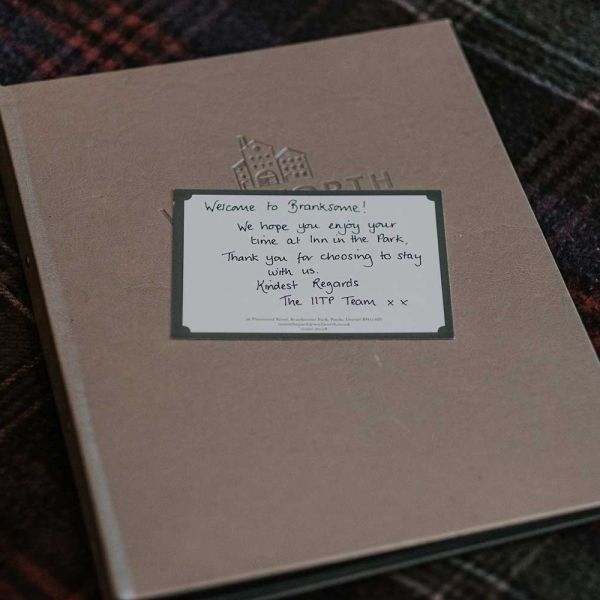 ORTH
Welcome to Branksome!
We hope you enjoy your
time at Inn in the Park,
Thank you for choosing to stay
with us.
Kindest Regards
The IITP Team x x
Road, Branksome Park, Poole, Dorset